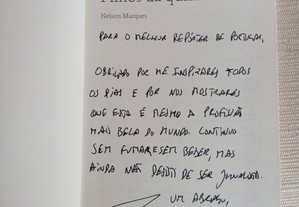 Filhos da que
Nelson Marques
PARA O MELHOR REPÓRTER DE PORTUGAL,
OBRIGADO POR ME INSPIRARES TODOS
OS DIAS E POR NOS MOSTRARES
QUE ESTA É MESMO A PROFISSÃO
MAIS BELA DO MUNDO. CONTINUO
SEM FUMAR E SEM BEBER, MAS
AINDA NÃO DESISTI DE SER JORNALISTA.
UM ABRAÇO,